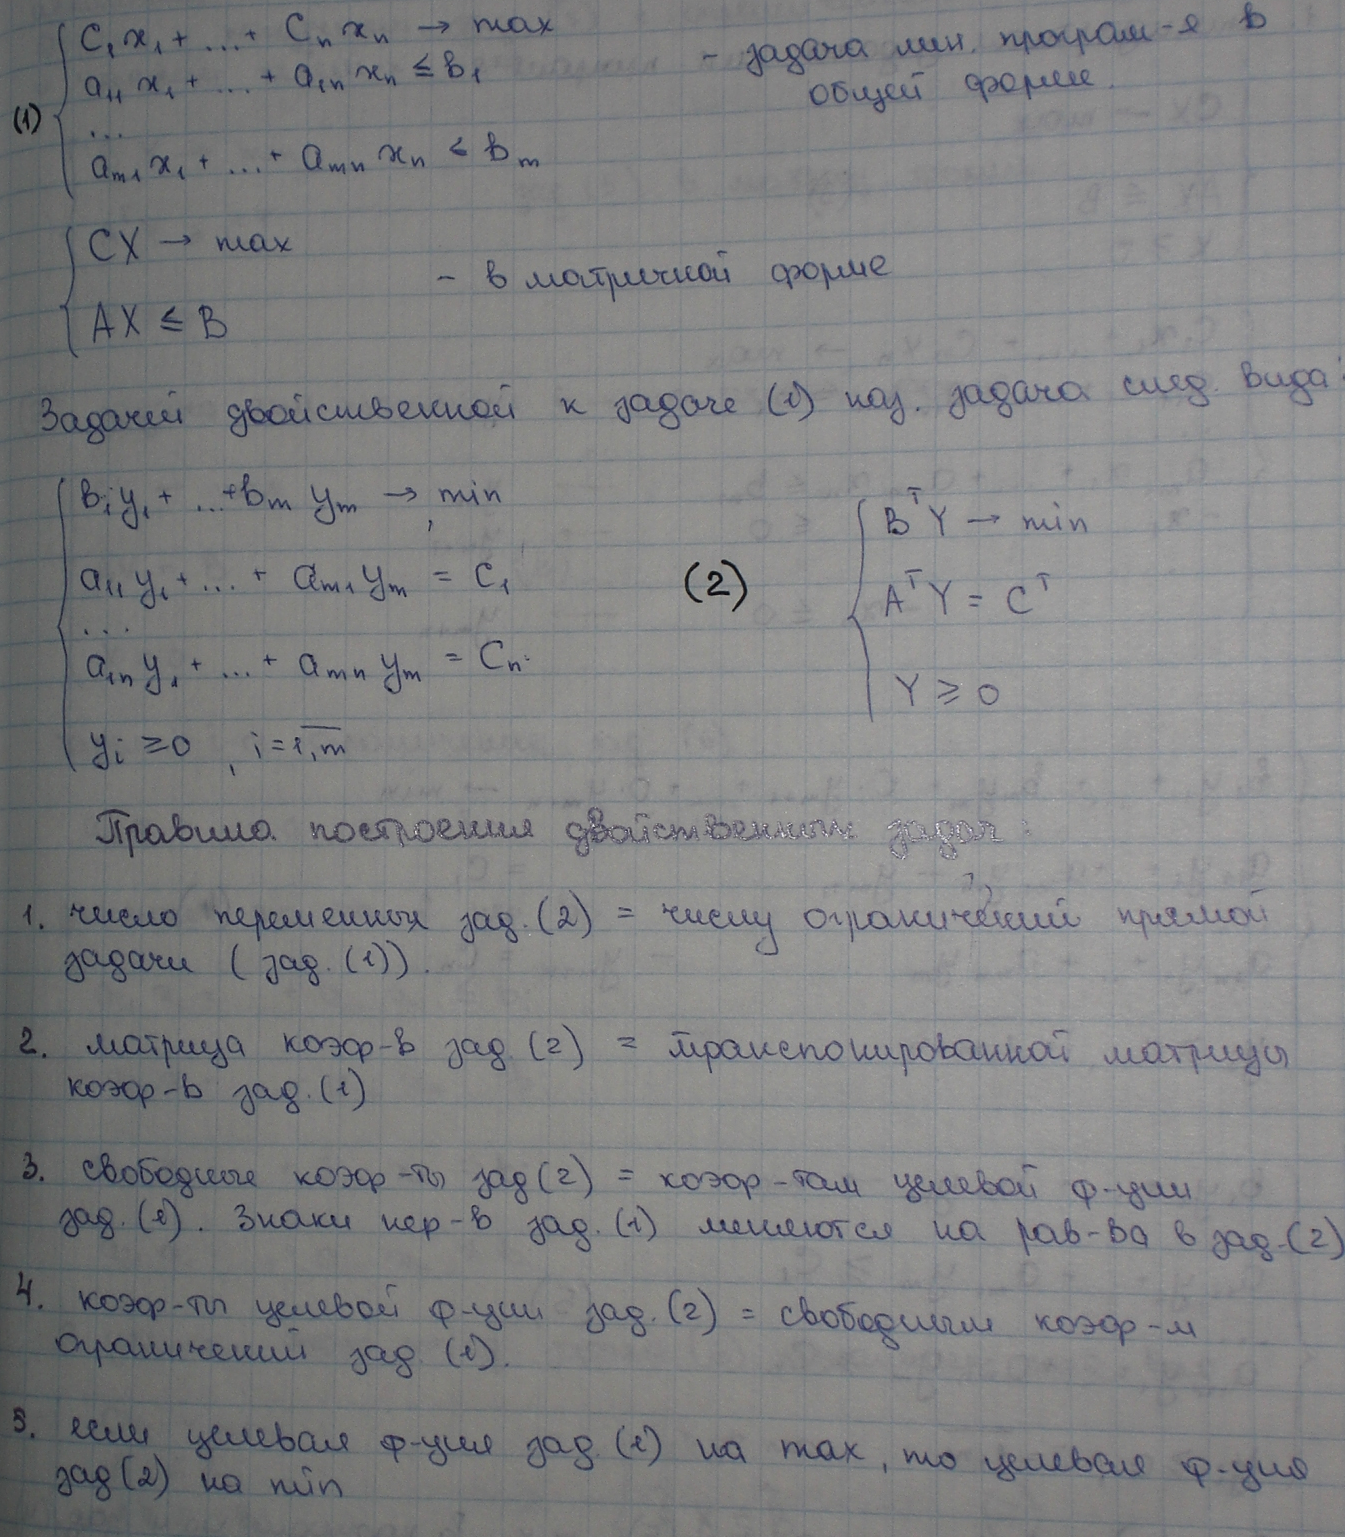 C₁x₁ + ... + Cₙxₙ → max
a₁₁x₁ + ... + a₁ₙxₙ ≤ b₁
(1)
...
aₘ₁x₁ + ... + aₘₙxₙ ≤ bₘ
- задача лин. програм-я в
общей форме.
CX → max
AX ≤ B
- в матричной форме
Задачей двойственной к задаче (1) наз. задача след. вида:
b₁y₁ + ... + bₘyₘ → min,
a₁₁y₁ + ... + aₘ₁yₘ = C₁
...
a₁ₙy₁ + ... + aₘₙyₘ = Cₙ.
yᵢ ≥ 0, i = 1,m
(2)
BᵀY → min
AᵀY = Cᵀ
Y ≥ 0
Правила построения двойственных задач:
1. число переменных зад. (2) = числу ограничений прямой
задачи (зад. (1)).
2. матрица коэф-в зад. (2) = транспонированной матрицы
коэф-в зад. (1)
3. свободные коэф-ты зад (2) = коэф-там целевой ф-ции
зад. (1). Знаки нер-в зад. (1) меняются на рав-ва в зад. (2)
4. коэф-ты целевой ф-ции зад. (2) = свободным коэф-м
ограничений зад. (1).
5. если целевая ф-ция зад. (1) на max, то целевая ф-ция
зад (2) на min